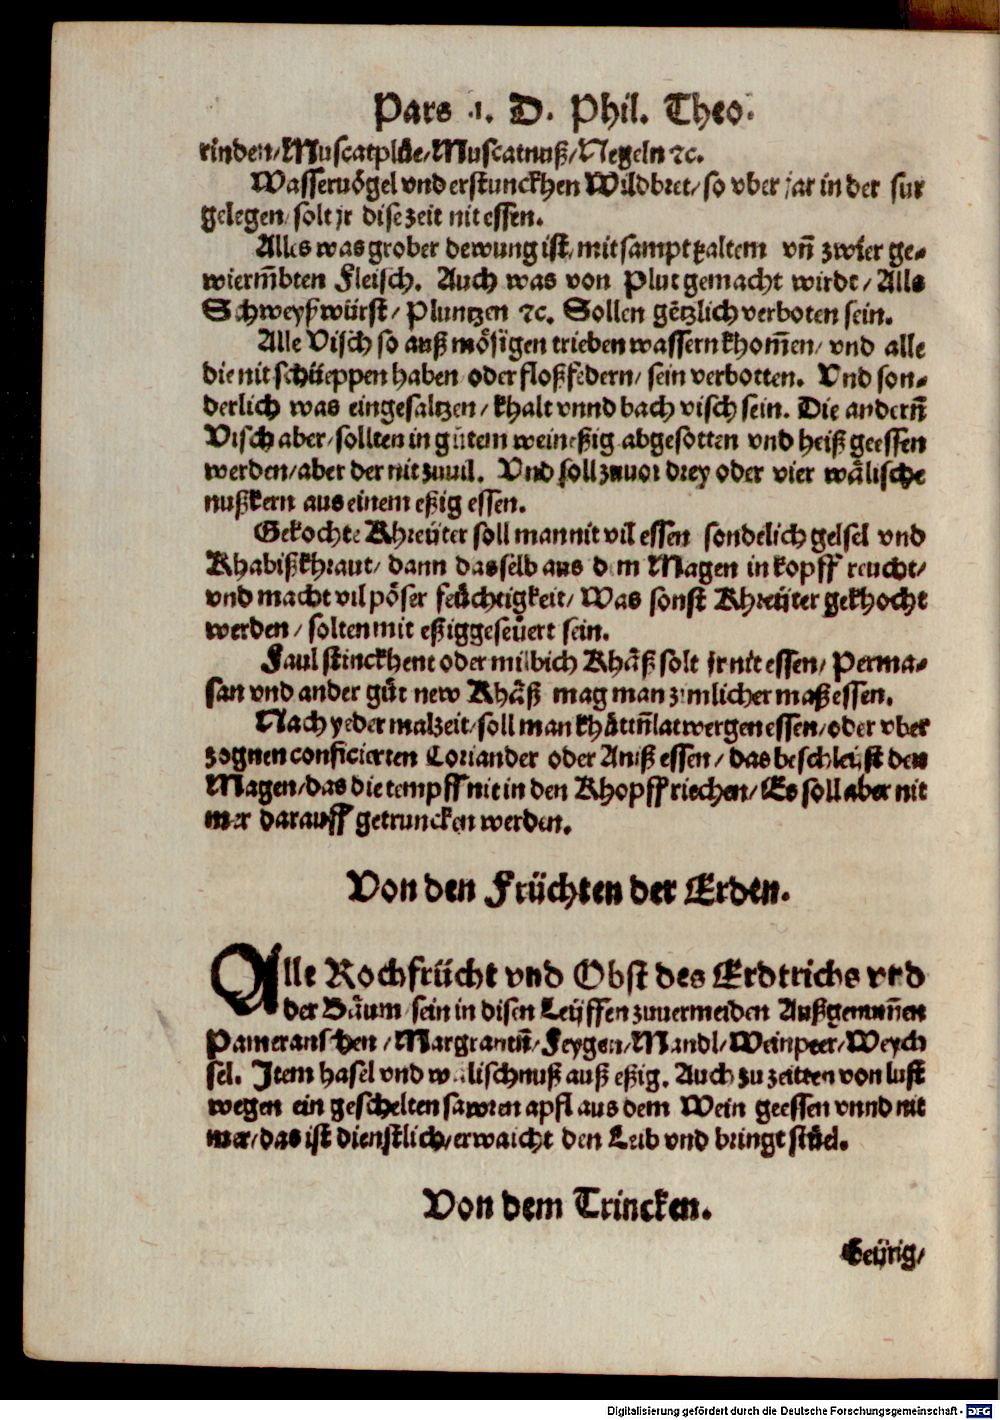 Pars .1. D. Phil. Theo.
rinden/Muscatplüe/Muscatnuß/Negeln ꝛc.
Wasseruögel vnd erstunckhen Wildbret/ so vber jar in der sur
gelegen/ solt jr dise zeit nit essen.
Alles was grober dewung ist/ mitsampt ꝛaltem vn̄ zwier ge-
wierm̄bten Fleisch. Auch was von Plut gemacht wirdt/ Alls
Schweyßwürst/ Pluntzen ꝛc. Sollen gētzlich verboten sein.
Alle Visch so auß mösigen trieben wassern khom̄en/ vnd alle
die nit schüeppen haben oder floßfedern/ sein verbotten. Vnd son-
derlich was eingesaltzen/ khalt vnnd bach visch sein. Die andern̄
Visch aber/ sollten in gůtem weineßig abgesotten vnd heiß geessen
werden/ aber der nit zuuil. Vnd soll zuuor drey oder vier wälische
nußkern aus einem eßig essen.
Gekochte Khreüter soll man nit vil essen sonderlich gelsel vnd
Khabißkhraut/ dann dasselb aus dem Magen in kopff reucht/
vnd macht vil pöser feüchtigkeit/ Was sonst Khreüter gekhocht
werden/ solten mit eßig geseüert sein.
Faul stinckhent oder milbich Khäß solt jr nit essen/ Perma-
san vnd ander gůt new Khäß mag man zimlicher maß essen.
Nach yeder malzeit/ soll man khüttn̄latwergen essen/ oder vber
zognen conficierten Coriander oder Aniß essen/ das beschleüst den
Magen/ das die tempff nit in den Khopff riechen/ Es soll aber nit
mer darauff getruncken werden.
Von den Früchten der Erden.
Alle Kochfrücht vnd Obst des Erdtrichs vnd
der Bäum/ sein in disen Leüffen zuuermeiden Außgenum̄en
Pameranschen/ Margrantn̄/ Feygen/ Mandl/ Weinpeer/ Weych
sel. Item hasel vnd wälischnuß auß eßig. Auch zu zeitten von lust
wegen ein geschelten sawren apfl aus dem Wein geessen vnnd nit
mer/ das ist dienstlich/ erwaicht den Leib vnd bringt stůel.
Von dem Trincken.
Geürig/
Digitalisierung gefördert durch die Deutsche Forschungsgemeinschaft - DFG